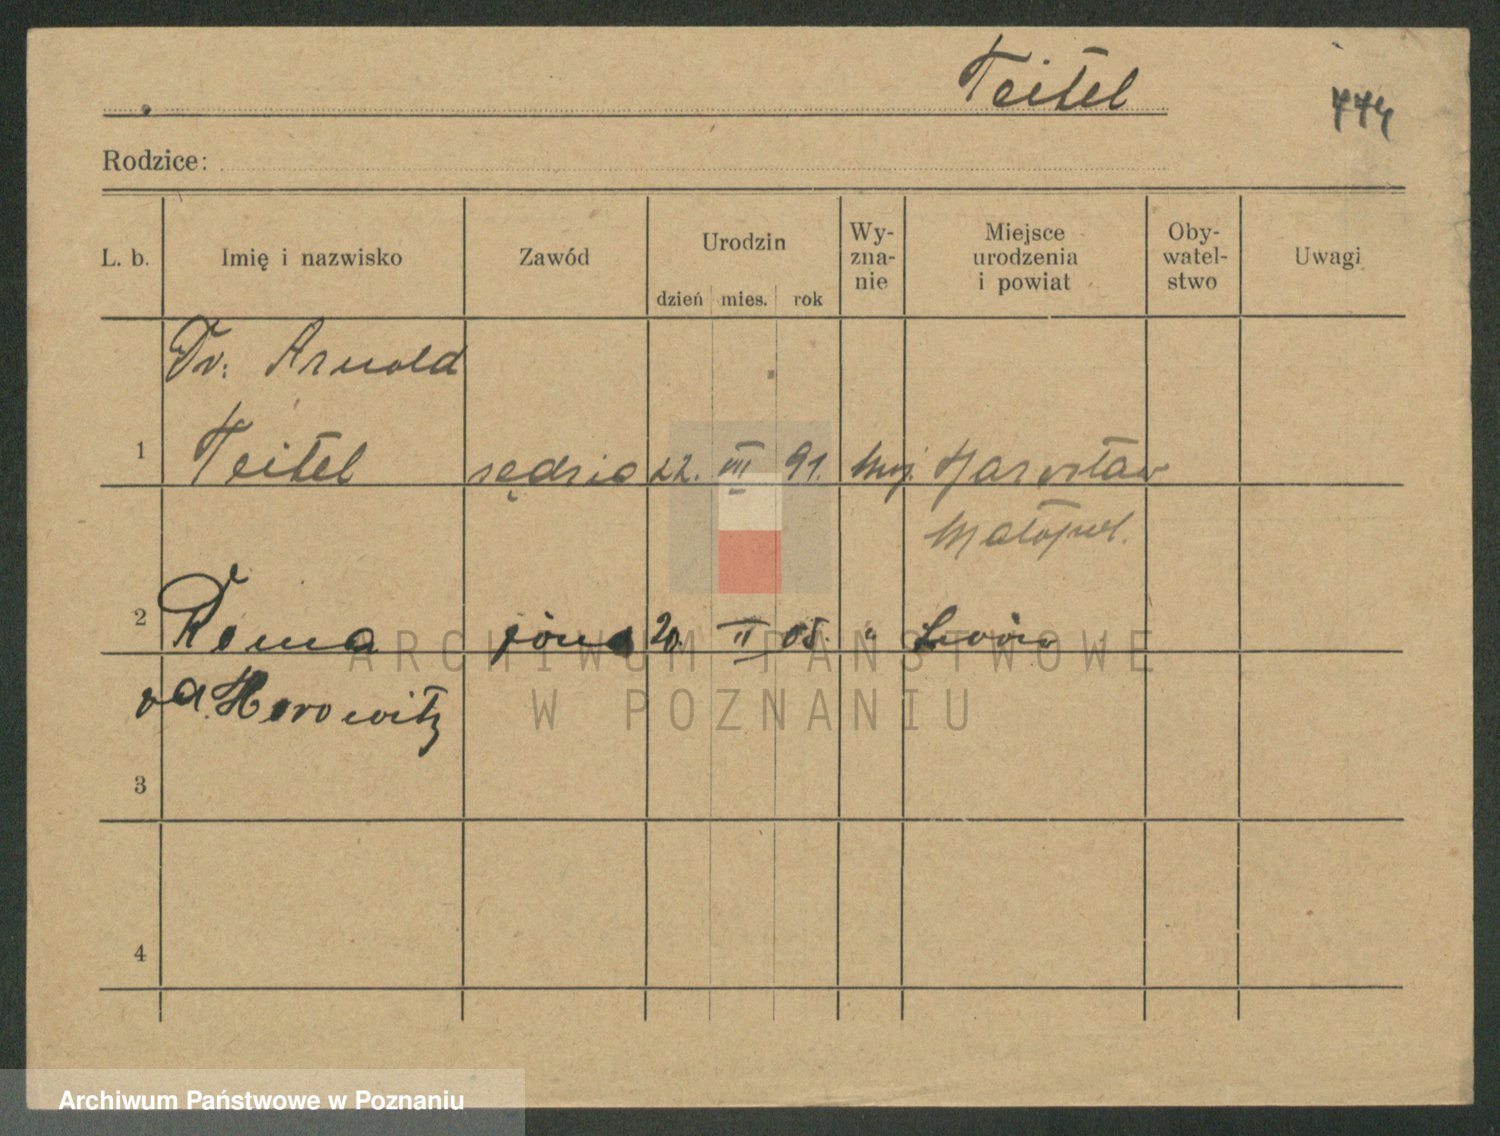 Teitel
774
Rodzice:
L. b. Imię i nazwisko Zawód Urodzin dzień mies. rok Wy-zna-nie Miejsce urodzenia i powiat Oby-watel-stwo Uwagi
Dr. Arnold
1 Teitel sędzia 22. VIII 91. moj. Jarosław
Małopol.
2 Roma żona 20. II 05. " Lwów
vd. Horowitz
3
4
ARCHIWUM PAŃSTWOWE
W POZNANIU
Archiwum Państwowe w Poznaniu